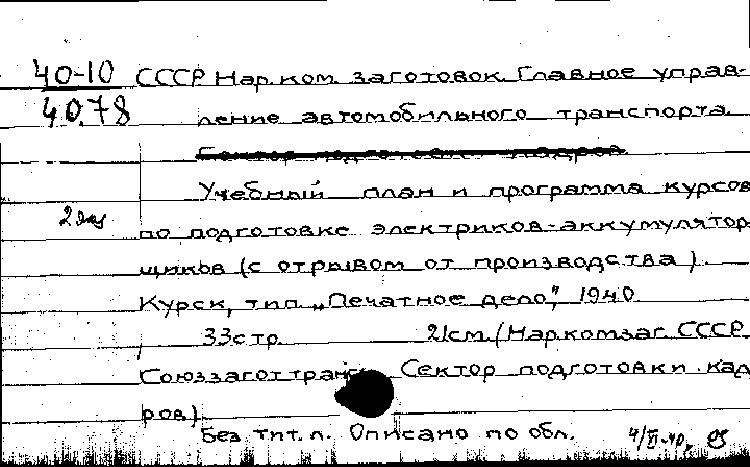 40-10 СССР Нар.ком. заготовок. Главное управ-
40.78 ление автомобильного транспорта.
Сектор подготовки кадров
Учебный план и программа курсов
2 экз.
по подготовке электриков-аккумулятор
щиков (с отрывом от производства).
Курск, тип. „Печатное дело", 1940.
33 стр. 21см. (Наркомзаг. СССР.
Союззаготтранс. Сектор подготовки кад
ров)
Без тит. л. Описано по обл. 4/VI-40.